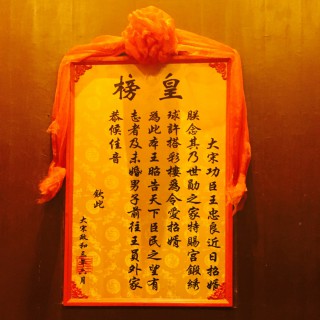 皇榜
大宋功臣王忠良近日招婿
朕念其乃世勋之家特赐宫锻綉
球許搭彩樓為令爱招婿
為此本王昭告天下臣民之望有
志者及未婚男子前往王員外家
恭候佳音
钦此
大宋政和三年六月